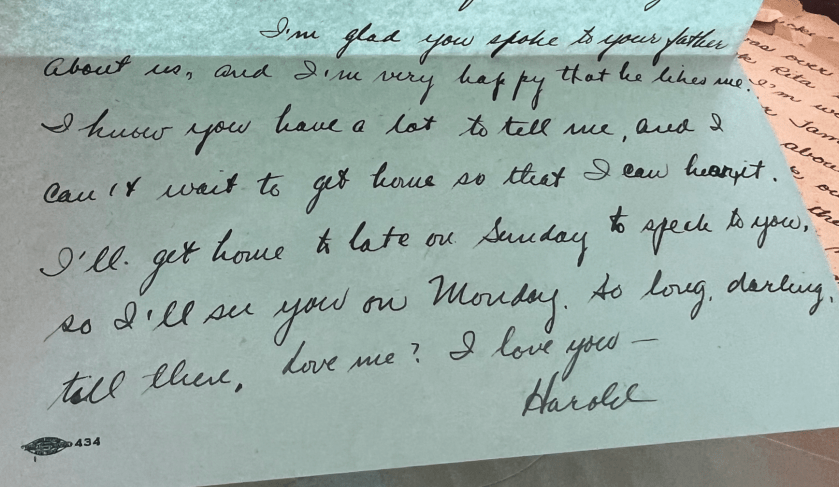 I'm glad you spoke to your father
about us, and I'm very happy that he likes me.
I know you have a lot to tell me, and I
can't wait to get home so that I can hear it.
I'll get home to late on Sunday to speek to you,
so I'll see you on Monday. So long, darling,
till then. Love me? I love you —
Harold
434
Rita
I'm
abou
the